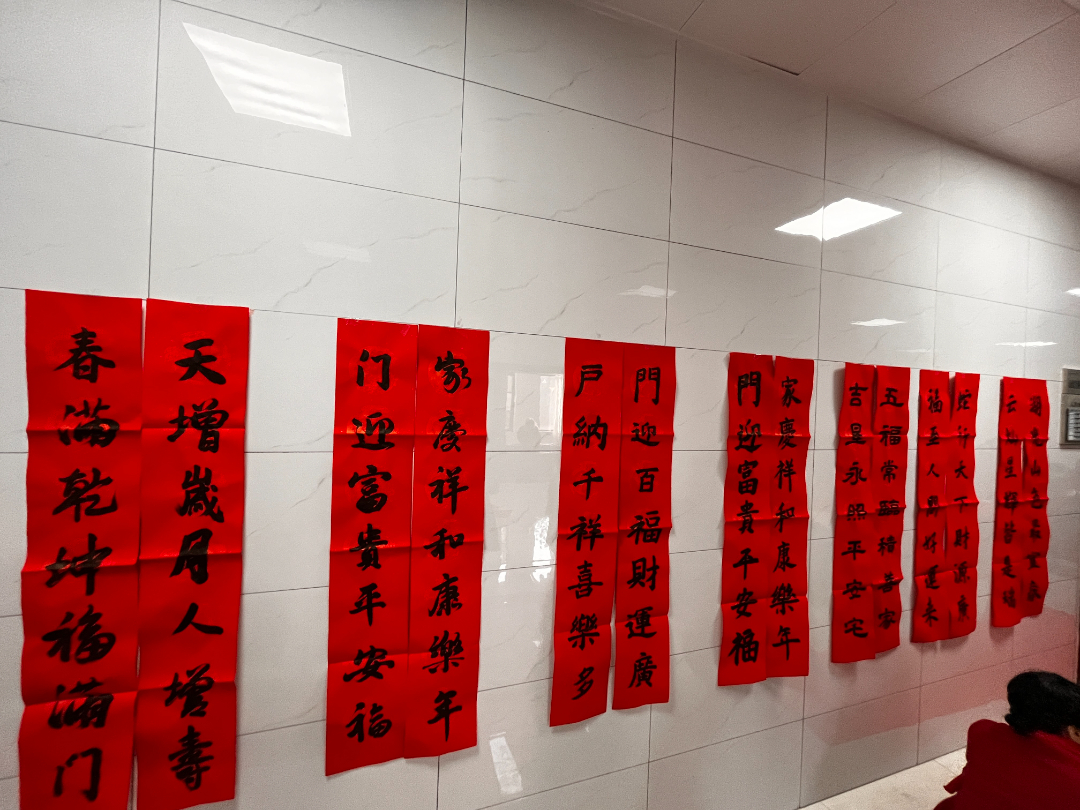 天增歲月人增壽
春满乾坤福满门
家慶祥和康樂年
门迎富貴平安福
門迎百福財運廣
戶納千祥喜樂多
家慶祥和康樂年
門迎富貴平安福
五福常臨積善家
吉星永照平安宅
蛇行天下財源廣
福至人間好運来